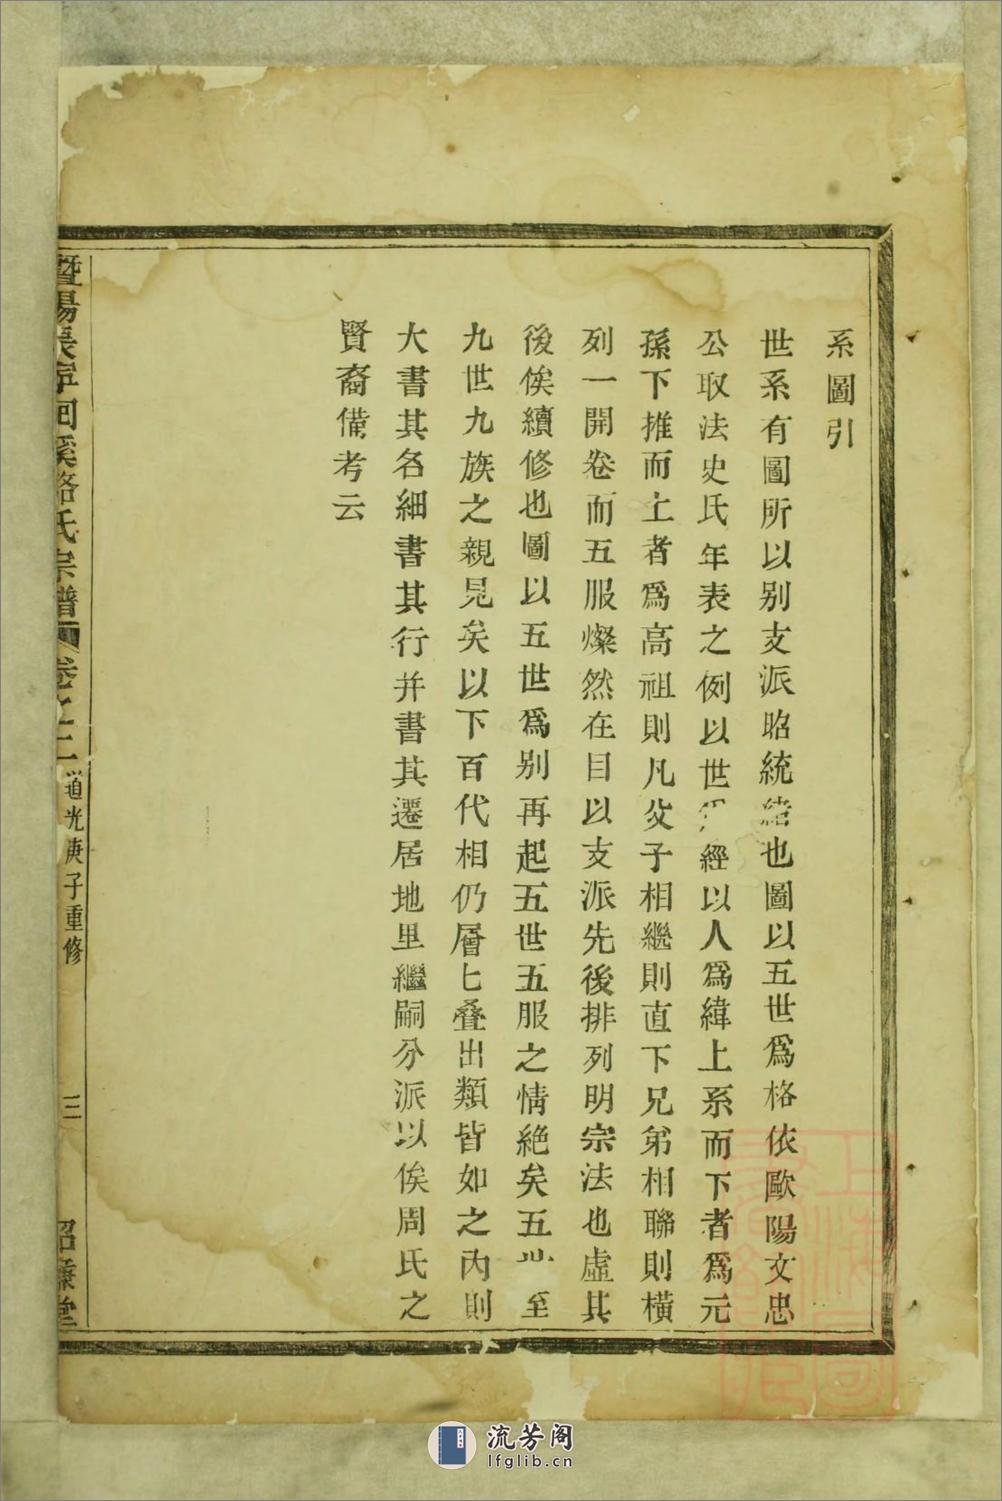 系圖引
世系有圖所以别支派昭統緒也圖以五世爲格依歐陽文忠
公取法史氏年表之例以世爲經以人爲緯上系而下者爲元
孫下推而上者爲高祖則凡父子相繼則直下兄弟相聯則橫
列一開卷而五服燦然在目以支派先後排列明宗法也虛其
後俟續修也圖以五世爲别再起五世五服之情絶矣五世至
九世九族之親見矣以下百代相仍層匕叠出類皆如之内則
大書其名細書其行并書其遷居地里繼嗣分派以俟周氏之
賢裔備考云
暨陽長寧洄溪駱氏宗譜 卷之二 道光庚子重修 三 堂
上海圖書館藏
流芳阁
lfglib.cn